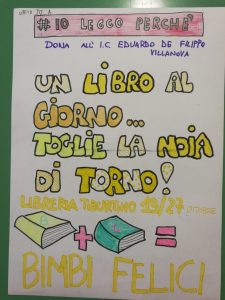 #IO LEGGO PERCHÈ
DONA ALL' I.C. EDUARDO DE FILIPPO
VILLANOVA
UN LIBRO AL
GIORNO...
TOGLIE LA NOIA
DI TORNO!
LIBRERIA TIBURTINO 19/27 OTTOBRE
+ =
BIMBI FELICI